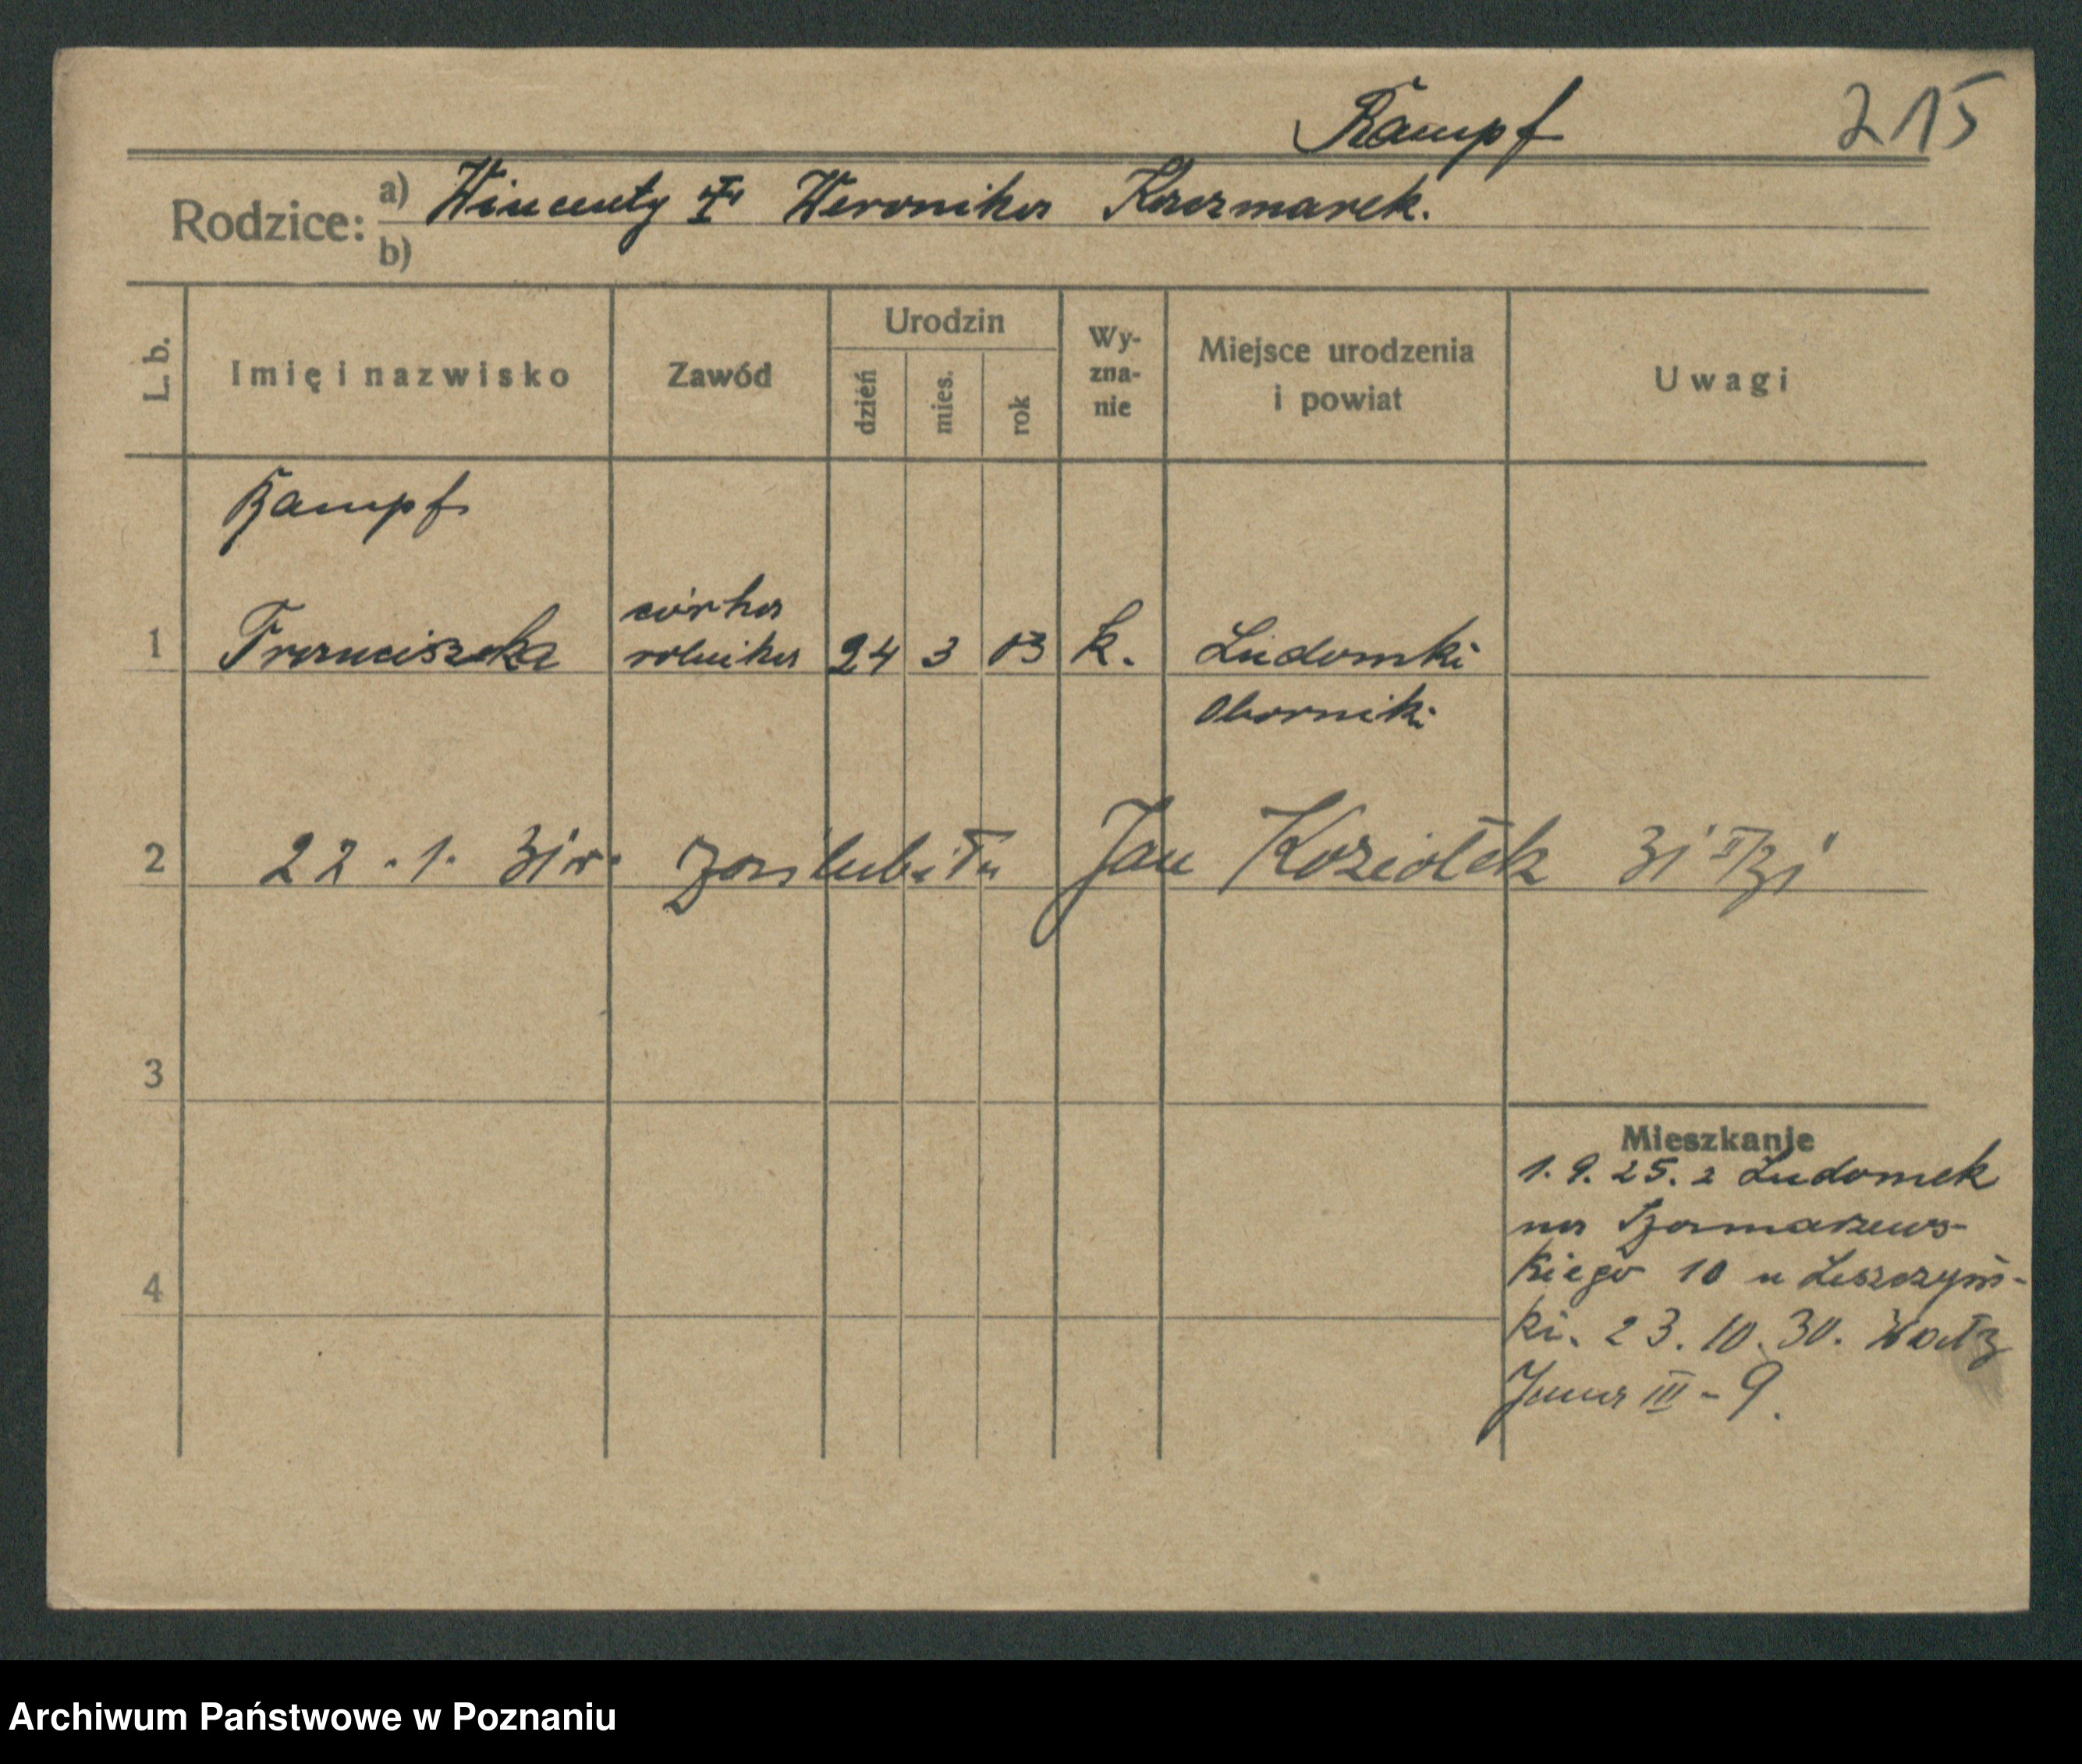 Kampf 215
Rodzice: a) Wincenty i Weronika Kaczmarek.
b)
L. b. Imię i nazwisko Zawód Urodzin dzień mies. rok Wy-zna-nie Miejsce urodzenia i powiat Uwagi
Kampf
córka
1 Franciszka rolnika 24 3 03 k. Ludomki
Oborniki
2 22.1.31 r. zaślubiła Jan Koziołek
3
Mieszkanie
1.9.25. z Ludomek
na
kiego 10 u Leszczyń-
4
ki. 23.10.30.
III - 9.
Archiwum Państwowe w Poznaniu